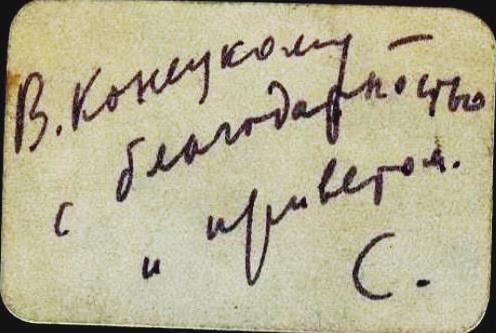 В. Конецкому –
с благодарностью
и приветом.
С.